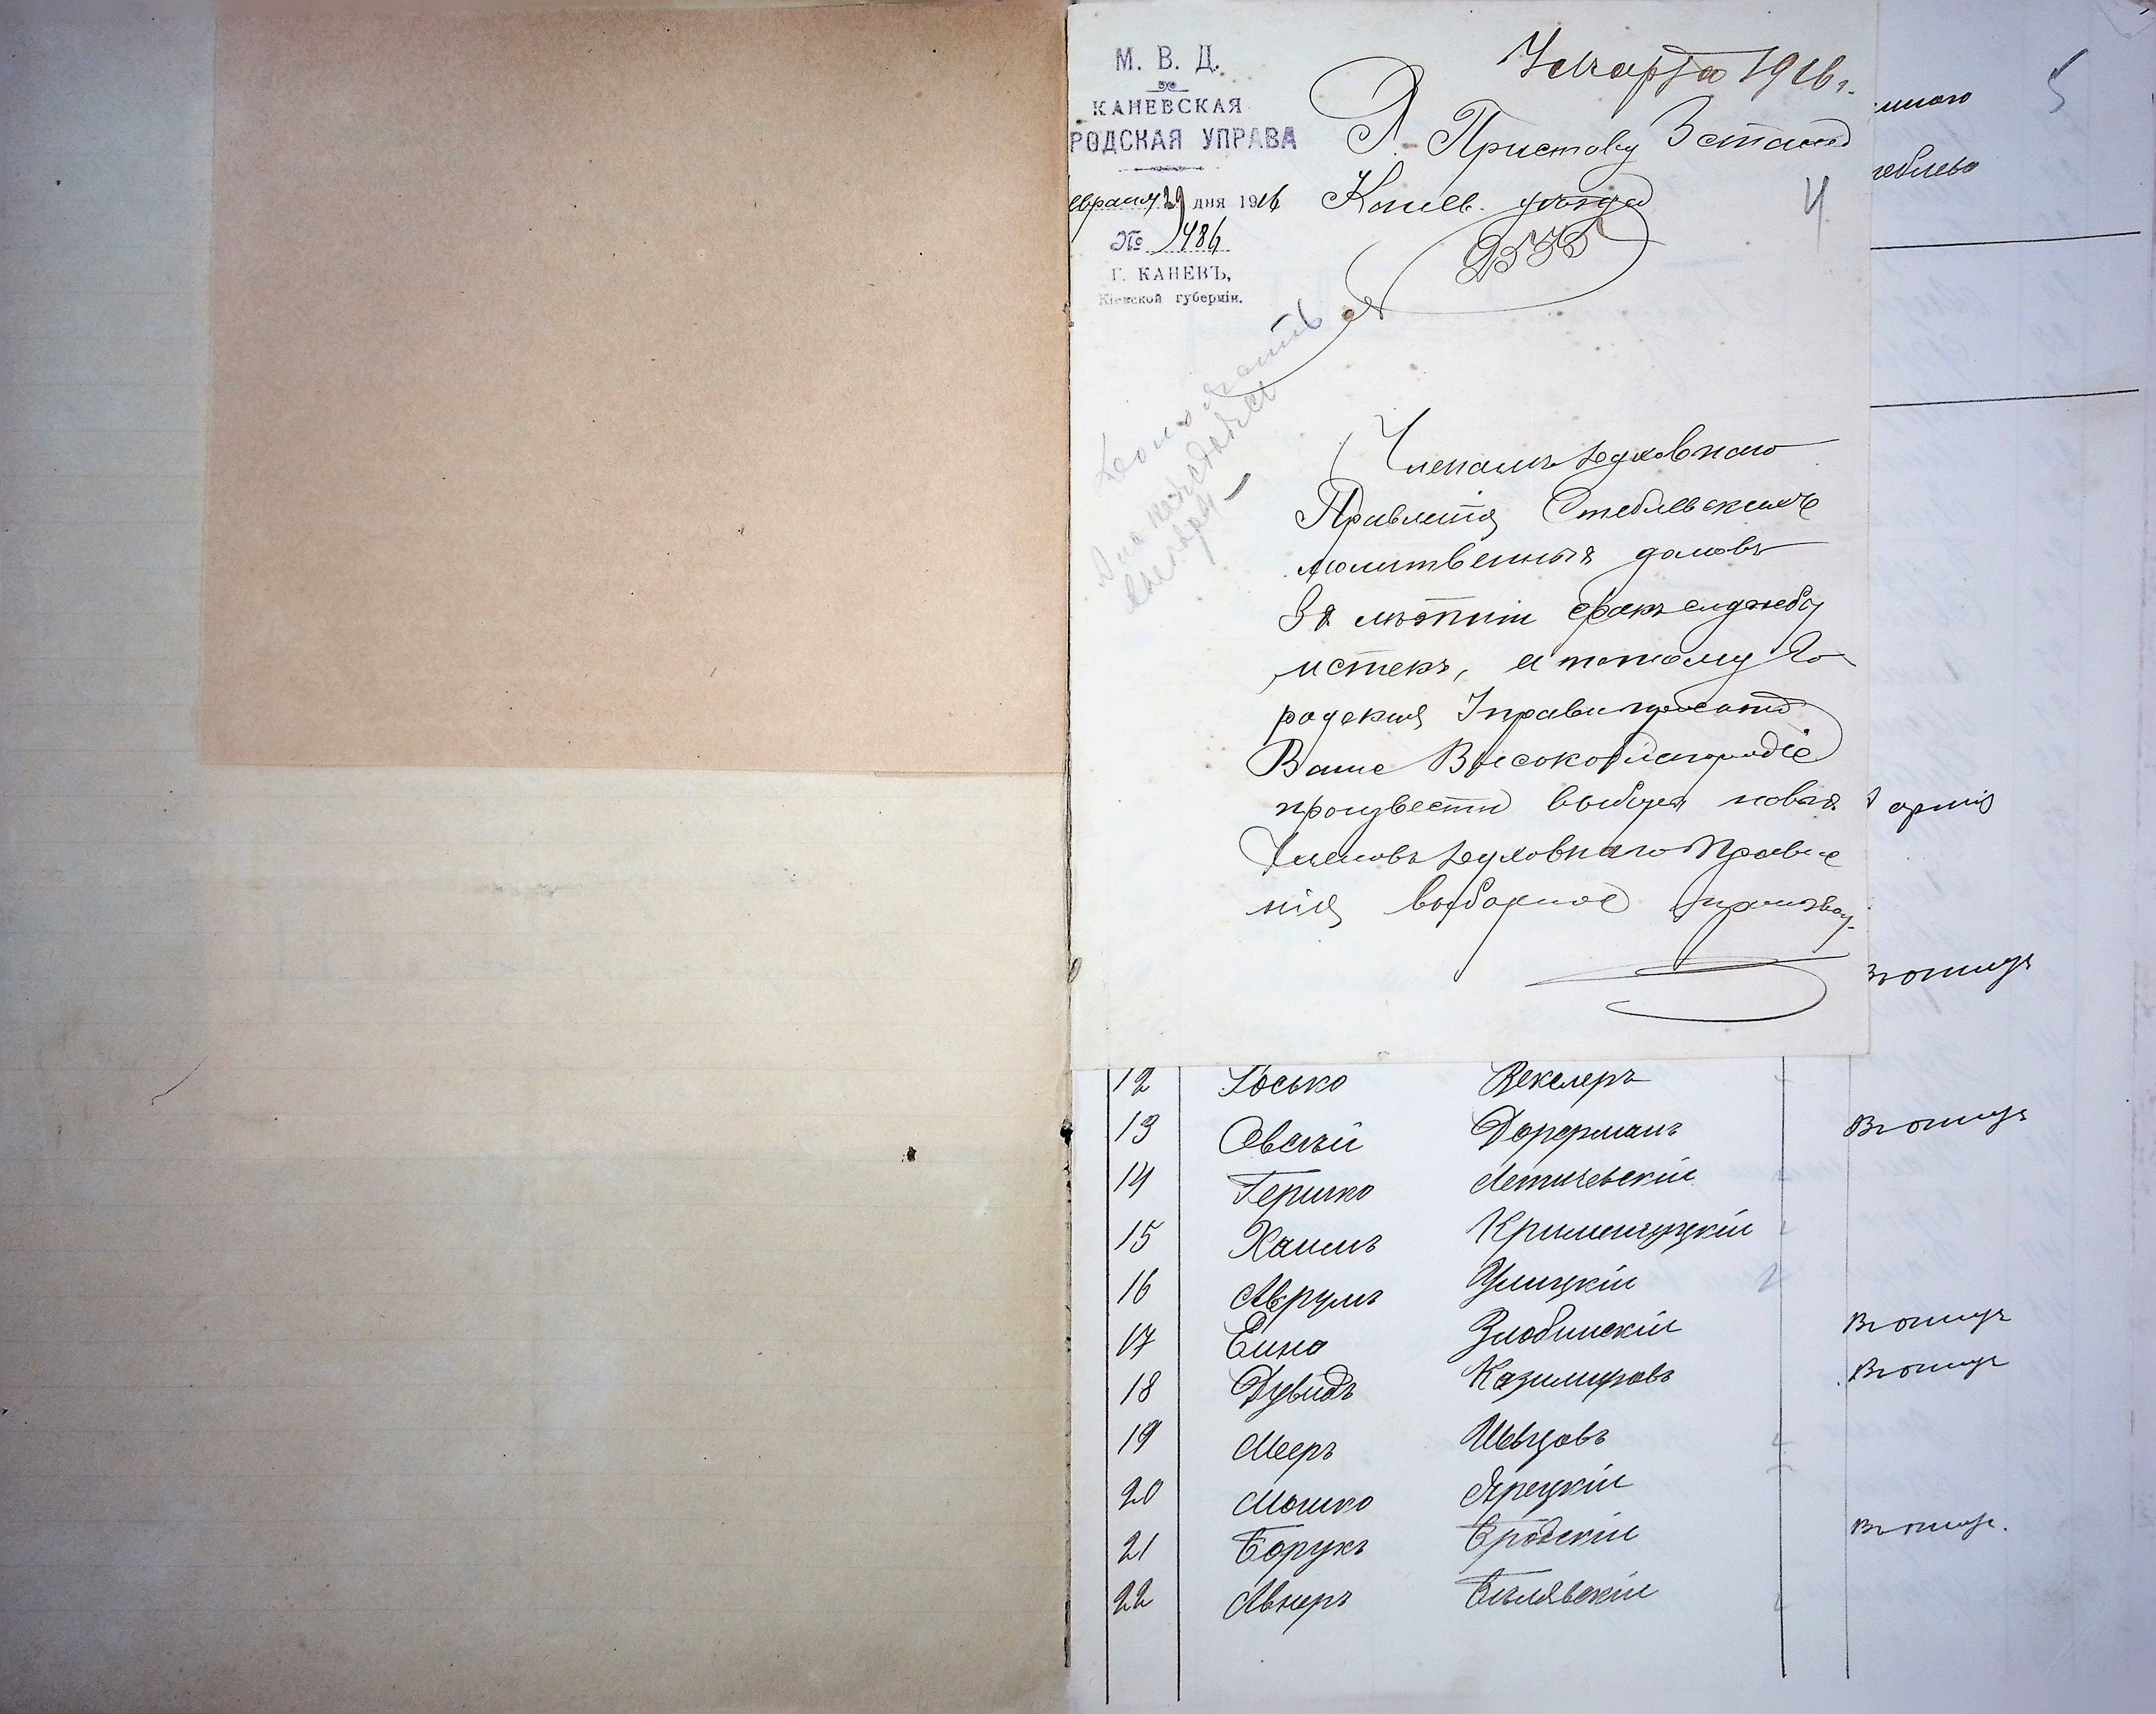 М. В. Д.
КАНЕВСКАЯ
РОДСКАЯ УПРАВА
евраля 29 дня 1916
№ 1486
Г. КАНЕВЪ,
Кіевской губерніи.
7 Марта 1916 г.
Г. Приставу 3 стана
Канев. уѣзда
4
Членамъ Духовнаго
Правленія Стеблевскихъ
молитвенныхъ домовъ
3х лѣтній срокъ службы
истекъ, а потому Го-
родская Управа проситъ
Ваше Высокоблагородіе
произвести выборы новыхъ
Членовъ Духовнаго Правле
нія выборное производ-
5
еблева
арміи
въ отлуч
12 Іосько Векслеръ
13 Овсѣй Дорфманъ Въ отлуч
14 Гершко Летичевскій
15 Хаимъ Кременчуцкій
16 Аврумъ Улицкій
17 Ейно Злобинскій Въ отлуч
18 Дувидъ Казимировъ Въ отлуч
19 Мееръ Швецовъ
20 Мошко Ярецкій
21 Борухъ Бродскій Въ отлуч.
22 Авнеръ Бѣлявскій